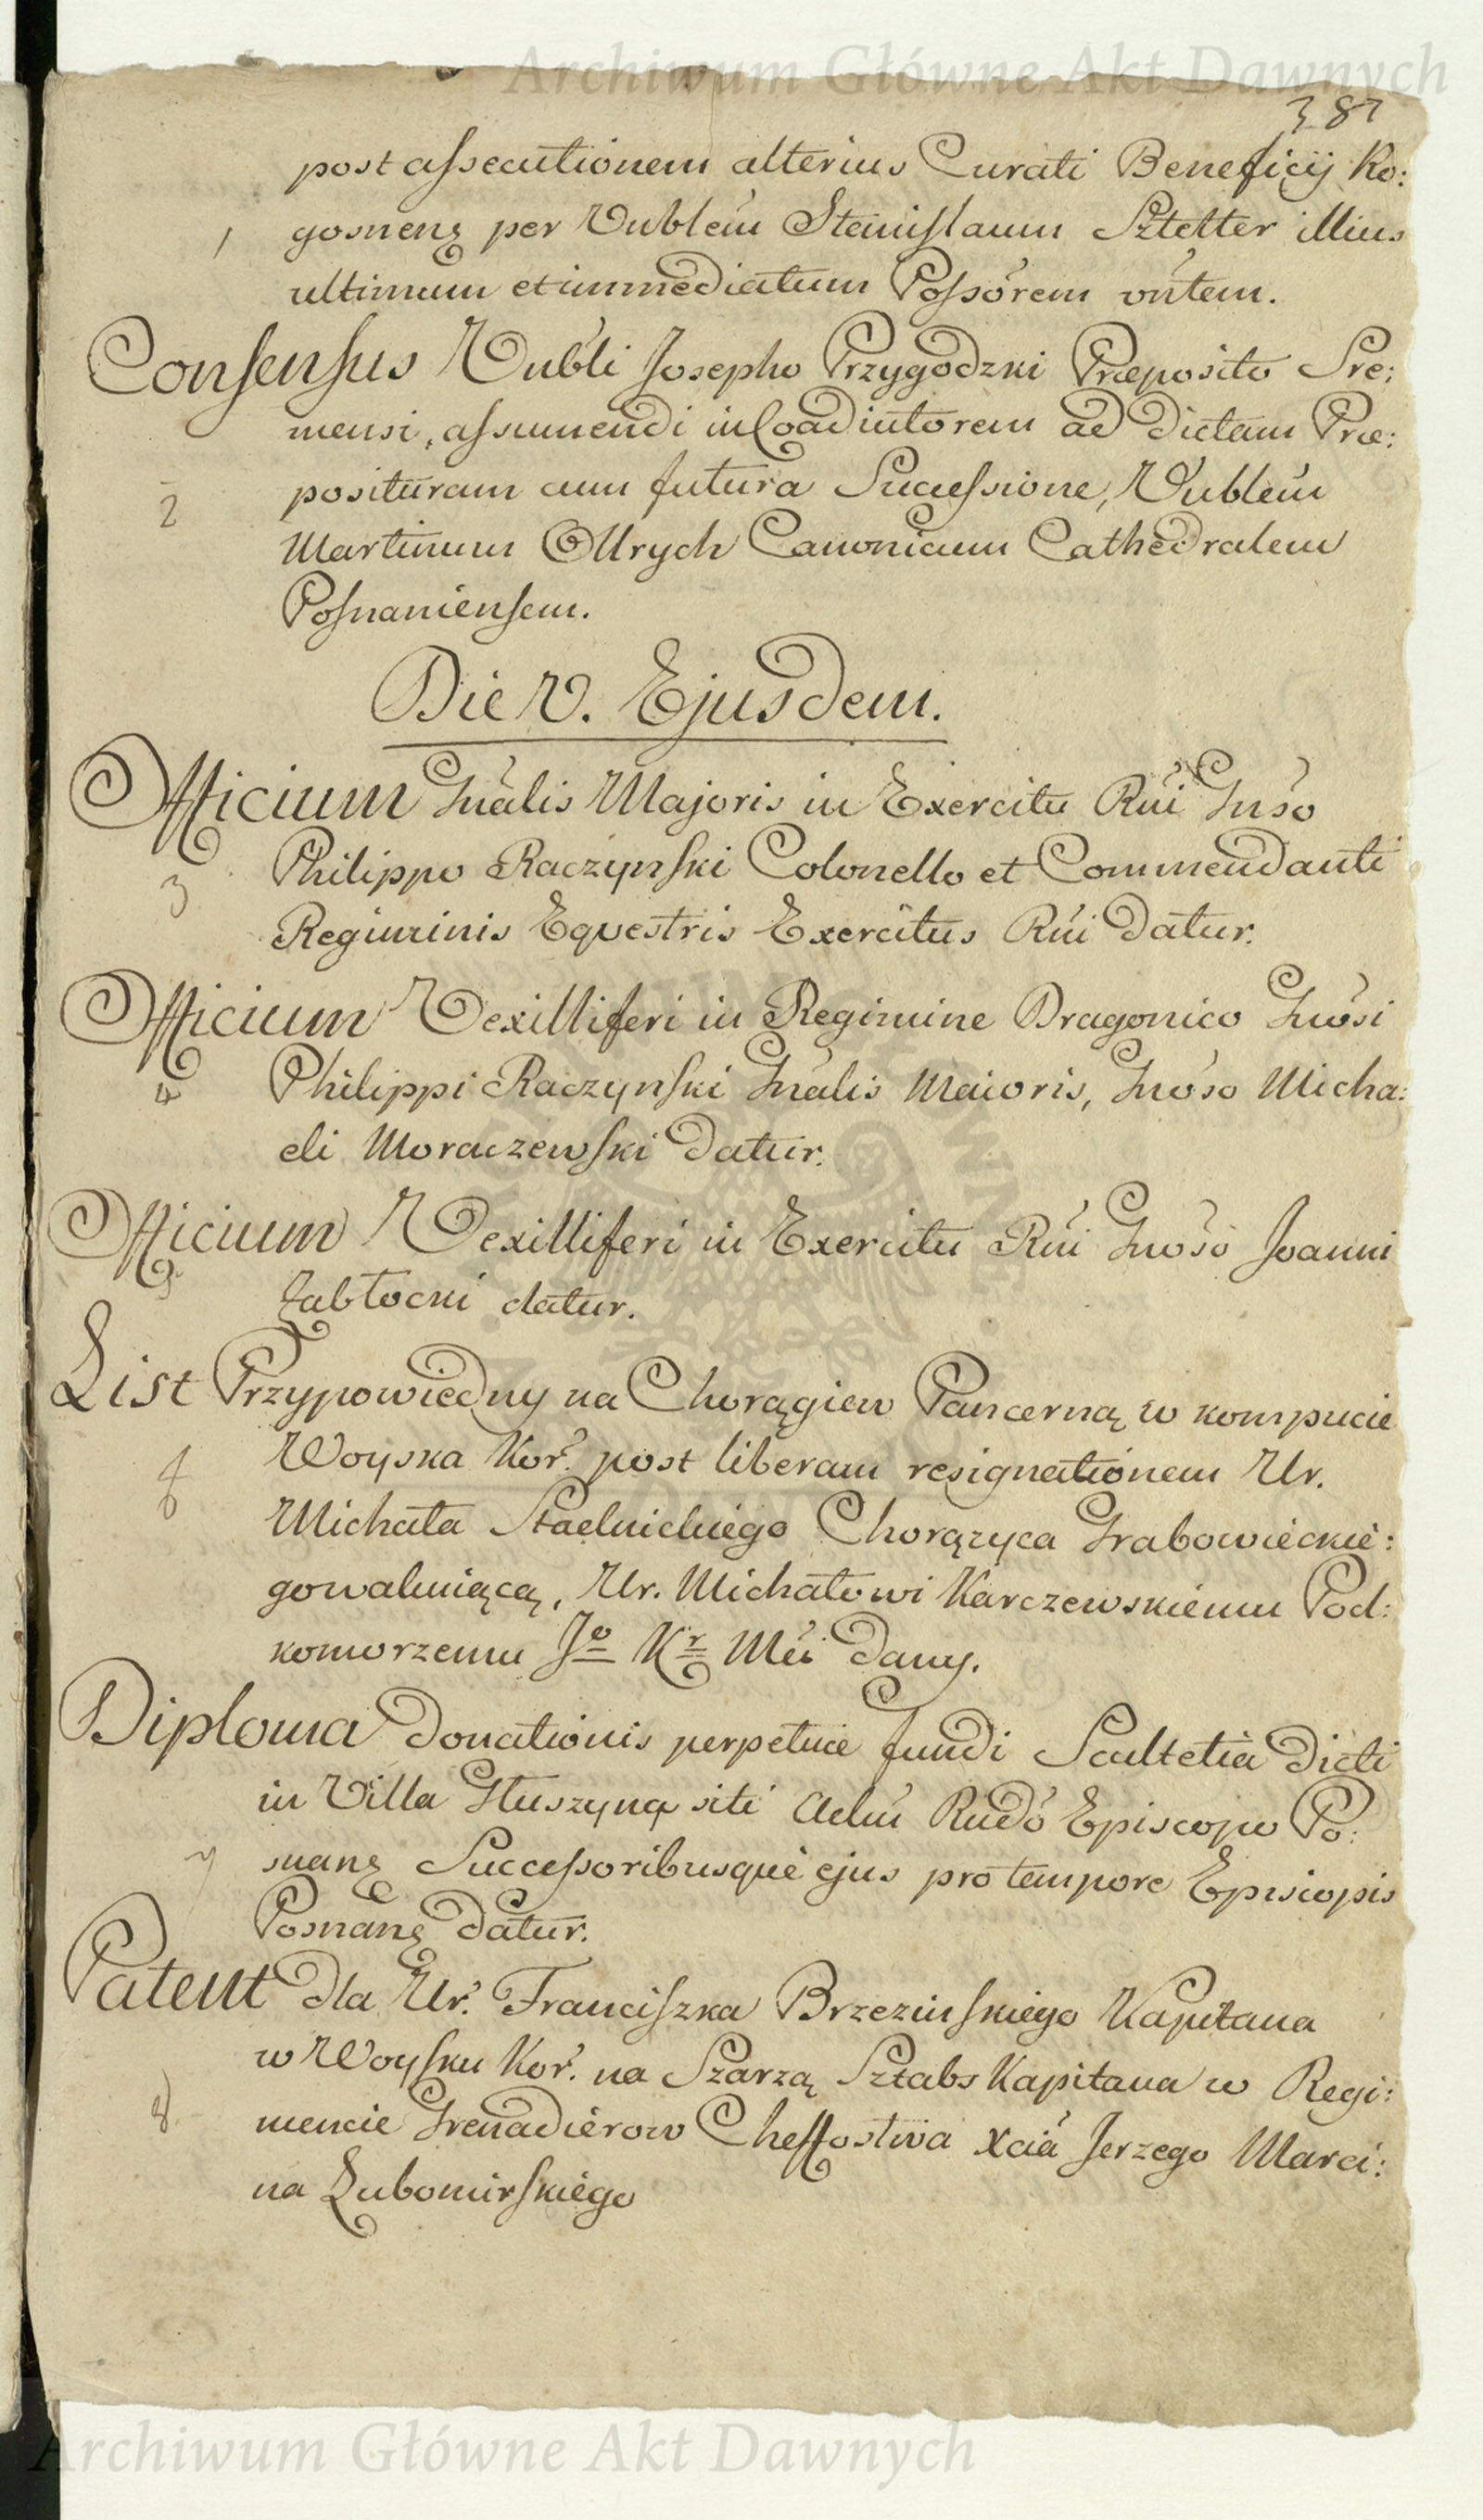 Archiwum Główne Akt Dawnych
387
post assecutionem alterius Curati Beneficij Ro:
1 gosnenę per Vublem Stanislaum Sztelter illius
ultimum et immediatum Possorem vntem.
Consensus Vubli Josepho Przygodzki Præposito Sre:
mensi, assumendi in Coadiutorem ad dictam Præ:
2 posituram cum futura Successione, Vublem
Martinum Ollrych Canonicum Cathedralem
Posnaniensem.
Die V. Ejusdem.
Officium Gnalis Majoris in Exercitu Rni Gnso
3 Philippo Raczynski Colonello et Commendanti
Regiminis Equestris Exercitus Rni datur.
Officium Vexilliferi in Regimine Dragonico Gnosi
4 Philippi Raczynski Gnalis Maioris, Gnoso Micha:
eli Moraczewski datur.
Officium Vexilliferi in Exercitu Rni Gnoso Joanni
5 Zabłocki datur.
List Przypowiedny na Chorągiew Pancerną w kompucie
6 Woyska Kor. post liberam resignationem Ur.
Michała Stadnickiego Chorązyca Grabowieckie:
go waluiącą, Ur. Michałowi Karczewskiemu Pod:
komorzemu Jo Kr Mci dany.
Diploma donationis perpetuæ fundi Scultetia dicti
in Villa Głuszyna siti Adm Rndo Episcopo Po:
7 snanę Successoribusque ejus pro tempore Episcopis
Posnanę datur.
Patent dla Ur. Franciszka Brzezinskiego Kapitana
w Woysku Kor. na Szarzą Sztabs Kapitana w Regi:
8 mencie Grenadierow Cheffostwa Xcia Jerzego Marci:
na Lubomirskiego
Archiwum Główne Akt Dawnych